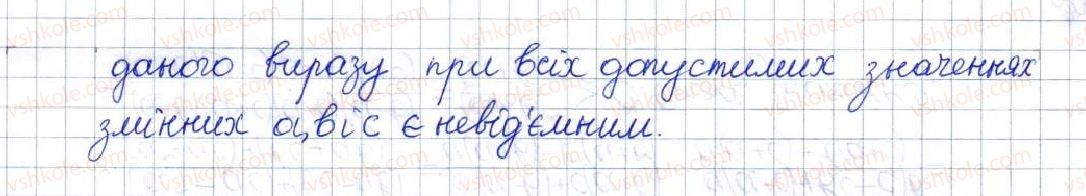 даного виразу при всіх допустимих значеннях
змінних а, в і с є невід'ємним.